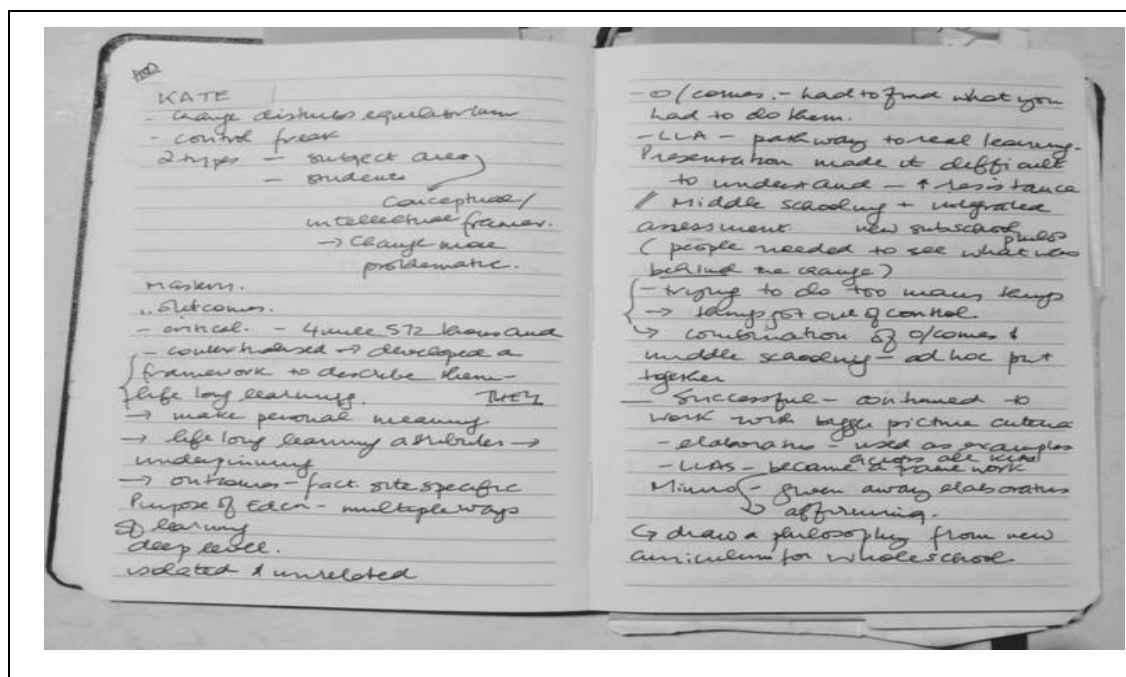 HOD
KATE
- Change disturbs equilatorium
- control freak
2 types - subject area
- students
Conceptual /
intellectual framer.
→ Change more
problematic.
Masters.
.. Outcomes.
- critical. - 4 mill 572 thousand
- contextualised → developed a
framework to describe them -
life long learning. THEY
→ make personal meaning
→ life long learning attributes →
underpinning
→ outcomes - fact. site specific
Purpose of Edcn - multiple ways
of learning
deep level.
isolated & unrelated
- o/comes. - had to find what you
had to do them.
- LLA - pathway to real learning.
Presentation made it difficult
to understand - ↑ resistance
// Middle schooling + integrated
assessment new subschool philos
(people needed to see what was
behind the change)
- trying to do too many things
→ things got out of control
↳ combination of o/comes &
middle schooling - ad hoc put
together
- Successful - continued to
work with bigger picture criteria
- elaborations - used as examples
across all KLAs
- LLAs - became a framework
given away elaborations
affirming.
↳ draw a philosophy from new
curriculum for whole school